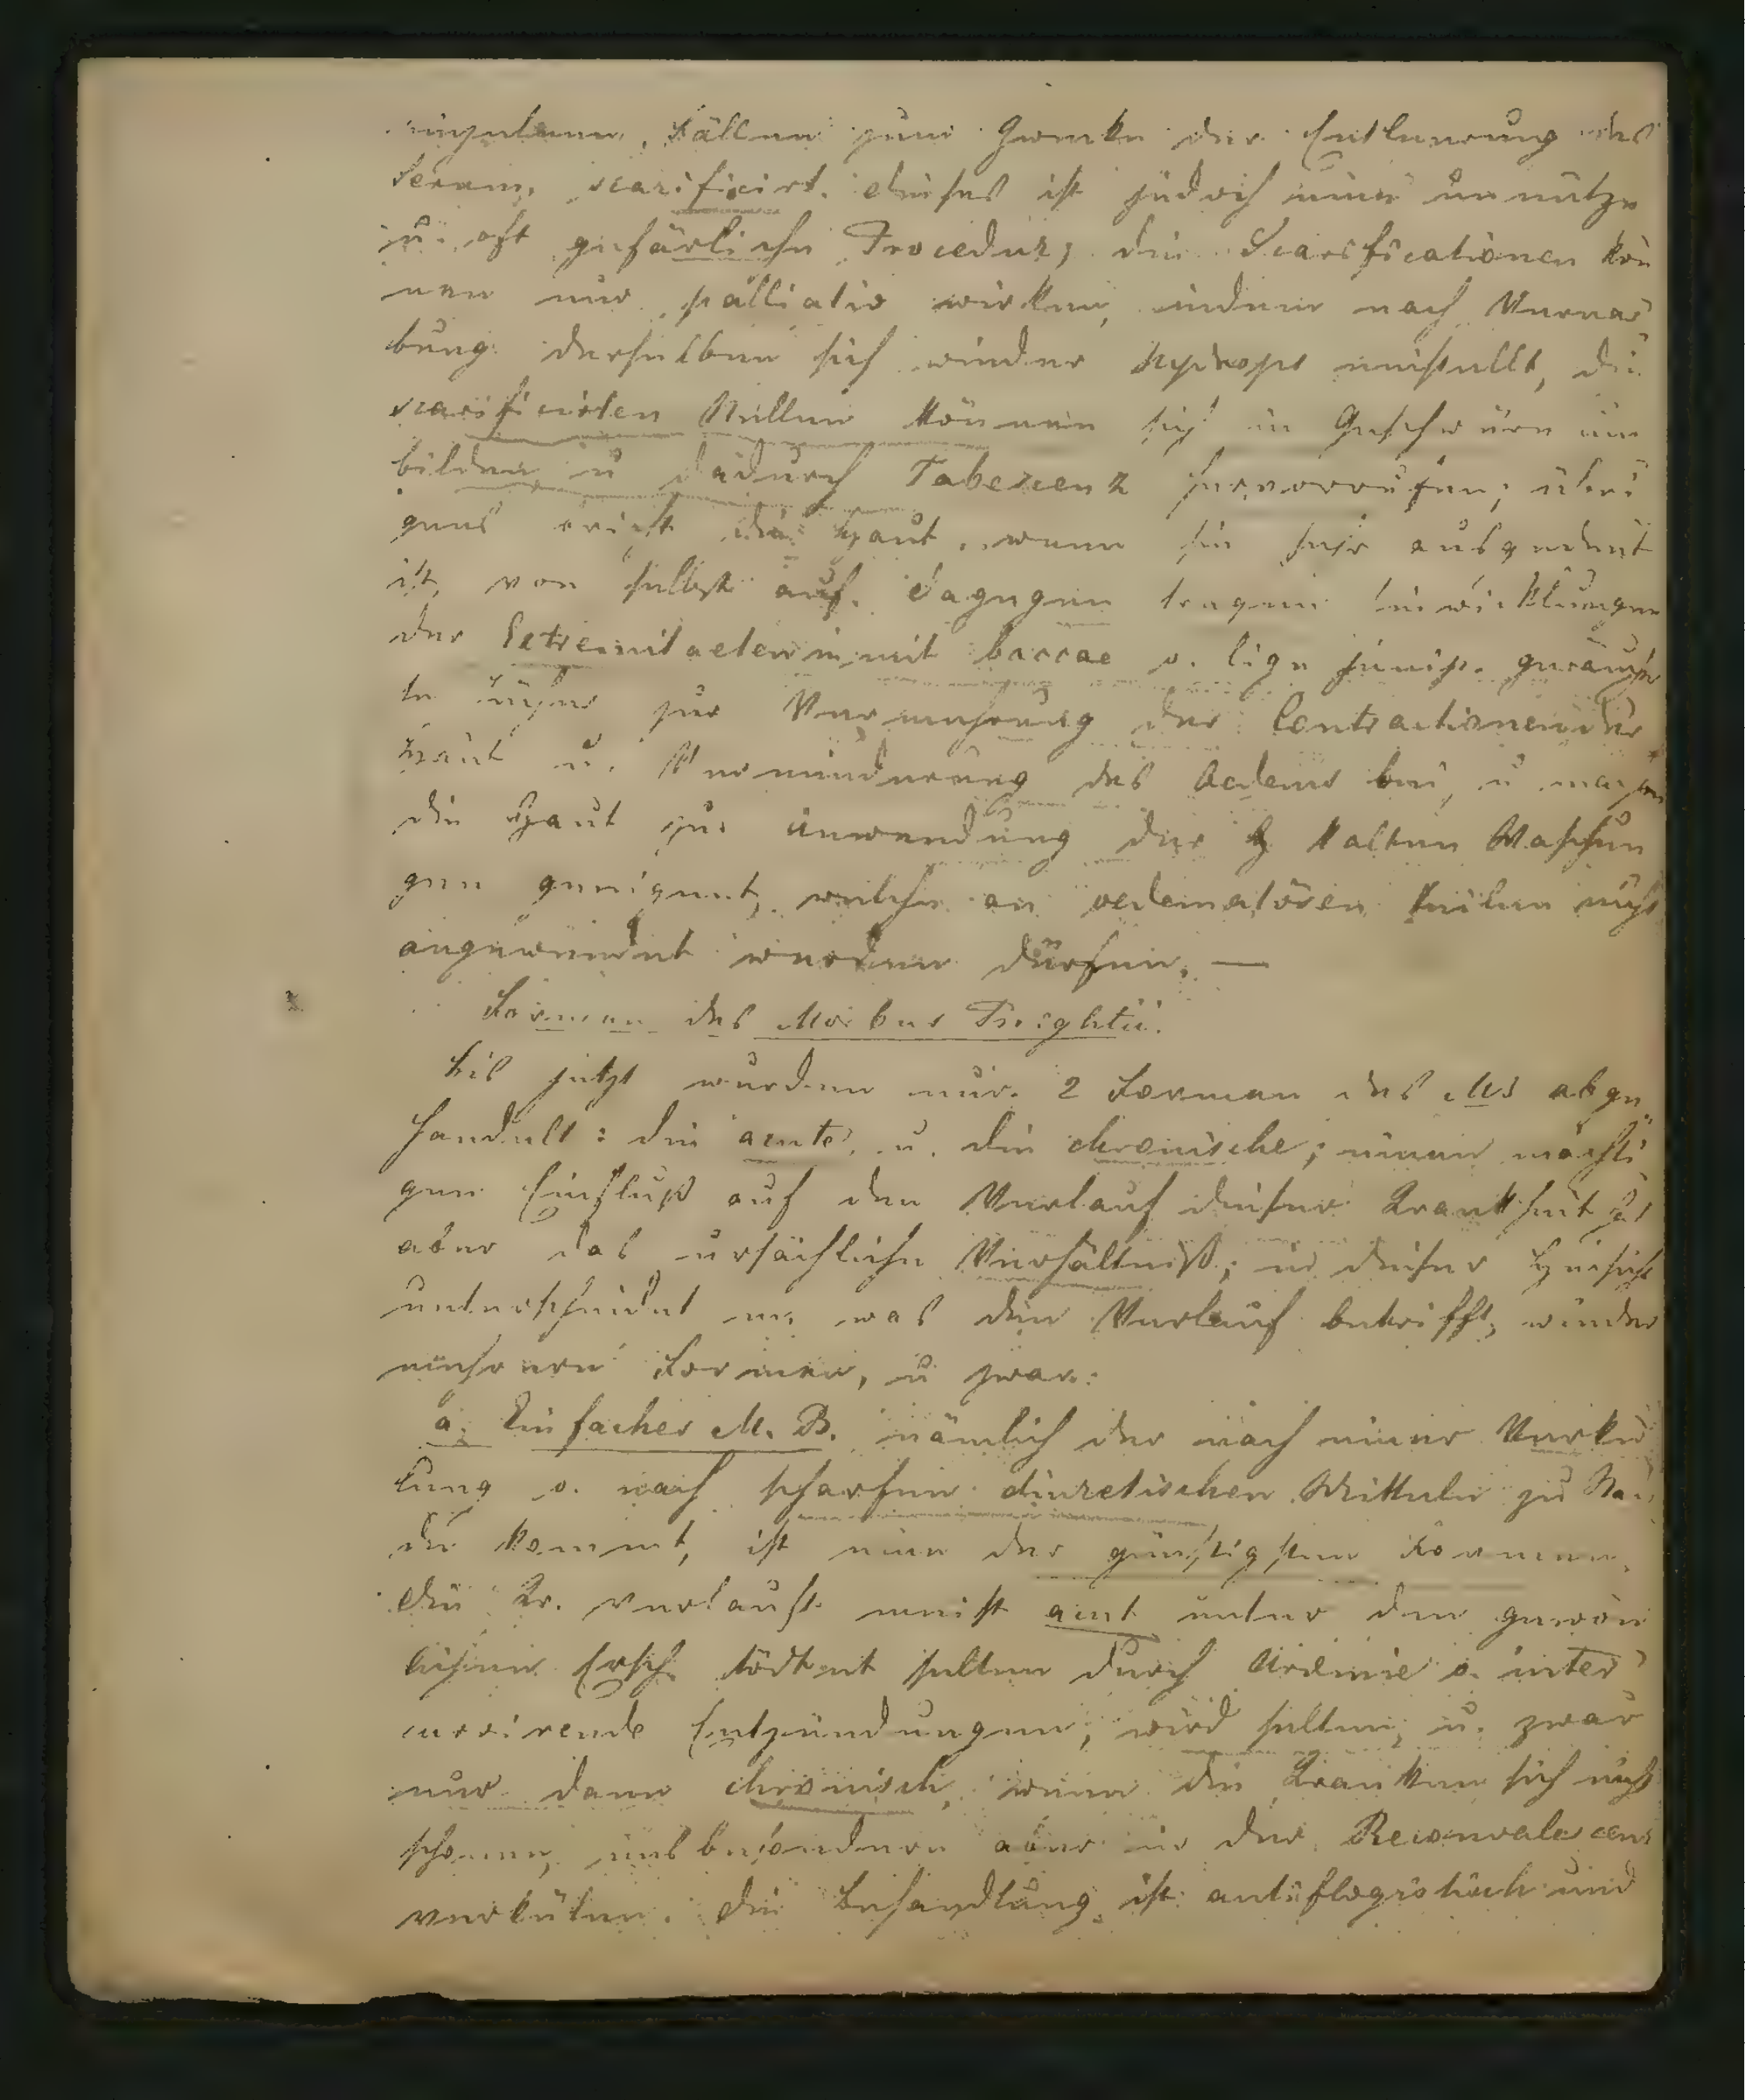 einzelnen Fällen zum Zwecke der Entleerung des
Serum scarificirt. dieses ist jedoch eine unnütze
u. oft gefärliche Procedur; die Scarificationen kön
nen nur palliativ wirken, indem nach Vernar
bung derselben sich wieder Hydrops einstellt, die
scarificirten Stellen können sich in Geschwüre um
bilden u dadurch Tabescenz hervorrufen; übri
gens bricht die Haut, wenn sie sehr ausgedent
ist, von selbst auf. dagegen tragen Einwicklungen
der Extremitaeten mit baccae o. lign junip. geräucher
te zur Vermehrung der Contractionen der
Haut u. Verminderung des Oedems bei, u machen
die Haut zur Anwendung der kalten Waschun
gen geeignet, welche an oedematösen Theilen nicht
angewendet werden dürfen. —
Formen des Morbus Brightii.
Bis jetzt wurden nur 2 Formen des MB abge
handelt: die acute u. die chronische; einen mächti
gen Einfluß auf den Verlauf dieser Krankheit hat
aber das ursächliche Verhältniß; in dieser Hinsicht
unterscheidet m, was den Verlauf betrifft, wieder
mehrere Formen, u zwar:
a, Einfacher M. B. nämlich der nach einer Verkü
lung o. nach scharfen diuretischen Mitteln zu Stan
de kommt, ist eine der günstigsten Formen.
die Kr. verlauft meist acut unter den gewön
lichen Ersch. tödtet selten durch Uraemie o. inter
currirende Entzündungen; wird selten, u. zwar
nur dann chronisch, wenn die Kranken sich nicht
schonen, insbesondere aber in der Reconvalescenz
verkülen. die Behandlung ist antiflogistisch und